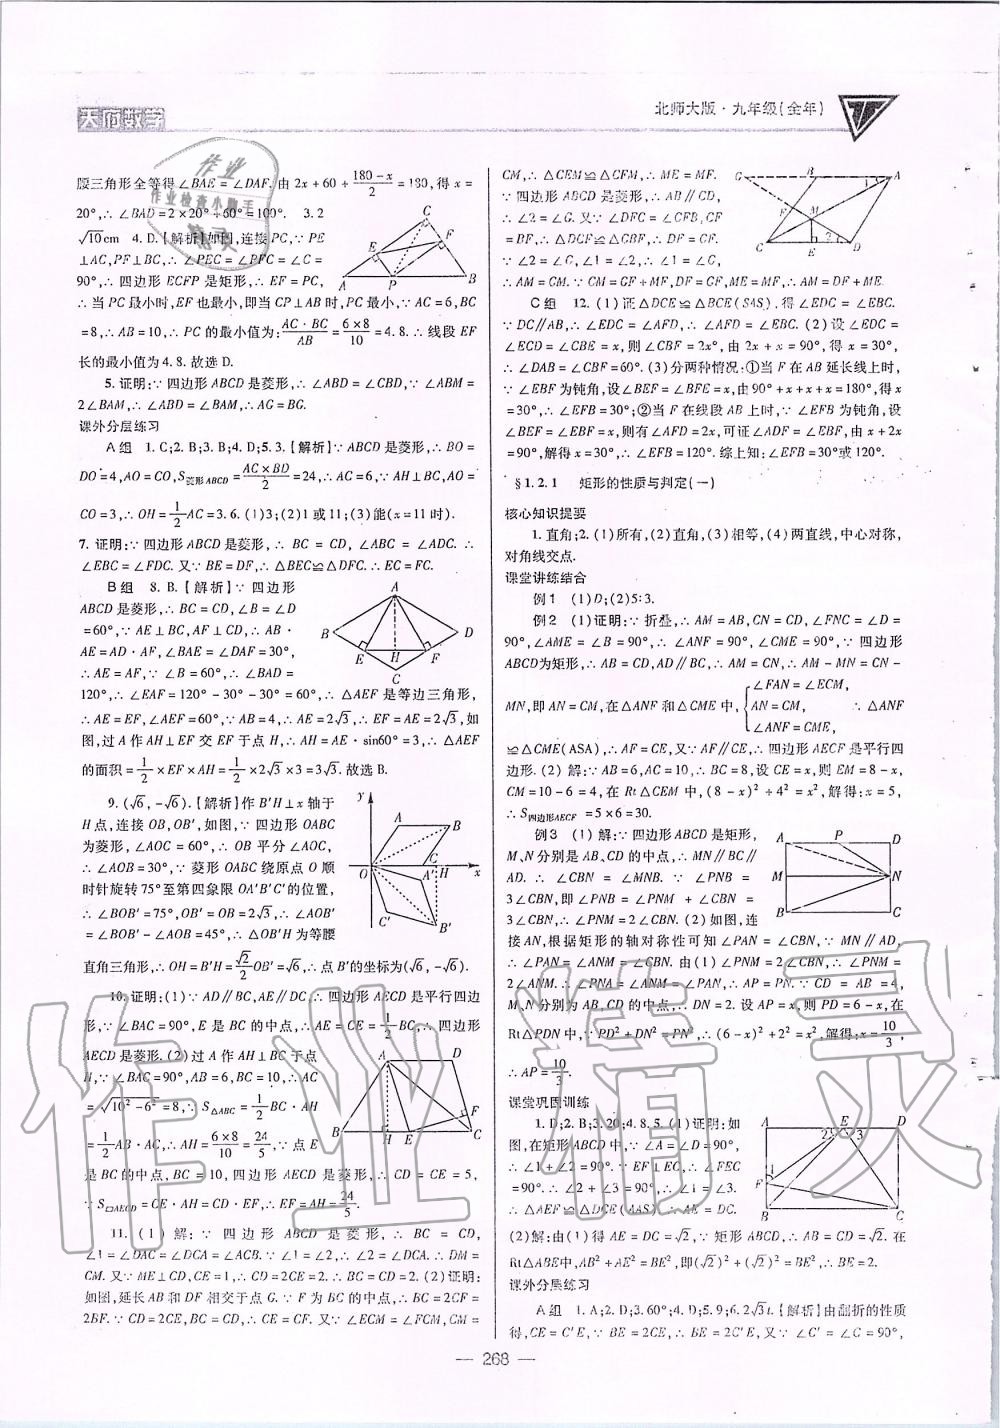 天府数学
北师大版·九年级(全年)
腰三角形全等得∠BAE=∠DAF.由2x+60+(180-x)/2=180,得x=
20°,∴∠BAD=2×20°+60°=100°. 3.2
√10cm 4.D.【解析】如图,连接PC,∵PE
⊥AC,PF⊥BC,∴∠PEC=∠PFC=∠C=
90°,∴四边形ECFP是矩形,∴EF=PC,
∴当PC最小时,EF也最小,即当CP⊥AB时,PC最小,∵AC=6,BC
=8,∴AB=10,∴PC的最小值为:AC·BC/AB=6×8/10=4.8.∴线段EF
长的最小值为4.8.故选D.
5.证明:∵四边形ABCD是菱形,∴∠ABD=∠CBD,∵∠ABM=
2∠BAM,∴∠ABD=∠BAM,∴AG=BG.
课外分层练习
A组 1.C;2.B;3.B;4.D;5.3.【解析】∵ABCD是菱形,∴BO=
DO=4,AO=CO,S菱形ABCD=AC×BD/2=24,∴AC=6,∵AH⊥BC,AO=
CO=3,∴OH=1/2AC=3.6.(1)3;(2)1或11;(3)能(x=11时).
7.证明:∵四边形ABCD是菱形,∴BC=CD,∠ABC=∠ADC.∴
∠EBC=∠FDC.又∵BE=DF,∴△BEC≌△DFC.∴EC=FC.
B组 8.B.【解析】∵四边形
ABCD是菱形,∴BC=CD,∠B=∠D
=60°,∵AE⊥BC,AF⊥CD,∴AB·
AE=AD·AF,∠BAE=∠DAF=30°,
∴AE=AF,∵∠B=60°,∴∠BAD=
120°,∴∠EAF=120°-30°-30°=60°,∴△AEF是等边三角形,
∴AE=EF,∠AEF=60°,∵AB=4,∴AE=2√3,∴EF=AE=2√3,如
图,过A作AH⊥EF交EF于点H,∴AH=AE·sin60°=3,∴△AEF
的面积=1/2×EF×AH=1/2×2√3×3=3√3.故选B.
9.(√6,-√6).【解析】作B'H⊥x轴于
H点,连接OB,OB',如图,∵四边形OABC
为菱形,∠AOC=60°,∴OB平分∠AOC,
∴∠AOB=30°,∵菱形OABC绕原点O顺
时针旋转75°至第四象限OA'B'C'的位置,
∴∠BOB'=75°,OB'=OB=2√3,∴∠AOB'
=∠BOB'-∠AOB=45°,∴△OB'H为等腰
直角三角形,∴OH=B'H=√2/2OB'=√6,∴点B'的坐标为(√6,-√6).
10.证明:(1)∵AD∥BC,AE∥DC,∴四边形AECD是平行四边
形,∵∠BAC=90°,E是BC的中点,∴AE=CE=1/2BC,∴四边形
AECD是菱形.(2)过A作AH⊥BC于点
H,∵∠BAC=90°,AB=6,BC=10,∴AC
=√10²-6²=8,∵S△ABC=1/2BC·AH
=1/2AB·AC,∴AH=6×8/10=24/5,∵点E
是BC的中点,BC=10,四边形AECD是菱形,∴CD=CE=5,
∵S▱AECD=CE·AH=CD·EF,∴EF=AH=24/5.
11.(1)解:∵四边形ABCD是菱形,∴BC=CD,
∠1=∠DAC=∠DCA=∠ACB.∵∠1=∠2,∴∠2=∠DCA.∴DM=
CM.又∵ME⊥CD,CE=1,∴CD=2CE=2.∴BC=2.(2)证明:
如图,延长AB和DF相交于点G.∵F为BC的中点,∴BC=2CF=
2BF.∵CD=2CE,BC=CD,∴CE=CF.又∵∠MCE=∠FCM,CM=
CM,∴△CEM≌△CFM,∴ME=MF.
∵四边形ABCD是菱形,∴AB∥CD,
∴∠2=∠G.又∵∠DFC=∠CFB,CF
=BF,∴△DCF≌△GBF,∴DF=GF.
∵∠2=∠1,∠2=∠G,∴∠1=∠G,
∴AM=GM.∵GM=GF+MF,DF=GF,ME=MF,∴AM=DF+ME.
C组 12.(1)证△DCE≌△BCE(SAS).得∠EDC=∠EBC.
∵DC∥AB,∴∠EDC=∠AFD,∴∠AFD=∠EBC.(2)设∠EDC=
∠ECD=∠CBE=x,则∠CBF=2x°,由2x+x=90°,得x=30°,
∴∠DAB=∠CBF=60°.(3)分两种情况:①当F在AB延长线上时,
∵∠EBF为钝角,设∠BEF=∠BFE=x,由90°+x+x+x=180°,得x
=30°,∴∠EFB=30°;②当F在线段AB上时,∵∠EFB为钝角,设
∠BEF=∠EBF=x,则有∠AFD=2x,可证∠ADF=∠EBF,由x+2x
=90°,解得x=30°,∴∠EFB=120°.综上知:∠EFB=30°或120°.
§1.2.1 矩形的性质与判定(一)
核心知识提要
1.直角;2.(1)所有,(2)直角,(3)相等,(4)两直线,中心对称,
对角线交点.
课堂讲练结合
例1 (1)D;(2)5:3.
例2 (1)证明:∵折叠,∴AM=AB,CN=CD,∠FNC=∠D=
90°,∠AME=∠B=90°,∴∠ANF=90°,∠CME=90°,∵四边形
ABCD为矩形,∴AB=CD,AD∥BC,∴AM=CN,∴AM-MN=CN-
MN,即AN=CM,在△ANF和△CME中,{∠FAN=∠ECM, AN=CM, ∠ANF=∠CME, ∴△ANF
≌△CME(ASA),∴AF=CE,又∵AF∥CE,∴四边形AECF是平行四
边形.(2)解:∵AB=6,AC=10,∴BC=8,设CE=x,则EM=8-x,
CM=10-6=4,在Rt△CEM中,(8-x)²+4²=x²,解得:x=5,
∴S四边形AECF=5×6=30.
例3 (1)解:∵四边形ABCD是矩形,
M、N分别是AB、CD的中点,∴MN∥BC∥
AD.∴∠CBN=∠MNB.∵∠PNB=
3∠CBN,即∠PNM+∠CBN=
3∠CBN,∴∠PNM=2∠CBN.(2)如图,连
接AN,根据矩形的轴对称性可知∠PAN=∠CBN,∵MN∥AD,
∴∠PAN=∠ANM=∠CBN.由(1)∠PNM=2∠CBN,∴∠PNM=
2∠ANM.∴∠PNA=∠ANM=∠PAN,∴AP=PN.∵CD=AB=4,
M、N分别为AB、CD的中点,∴DN=2.设AP=x,则PD=6-x,在
Rt△PDN中,∵PD²+DN²=PN²,∴(6-x)²+2²=x²,解得:x=10/3,
∴AP=10/3.
课堂巩固训练
1.D;2.B;3.20;4.8.5.(1)证明:如
图,在矩形ABCD中,∵∠A=∠D=90°,
∴∠1+∠2=90°.∵EF⊥EC,∴∠FEC
=90°.∴∠2+∠3=90°,∴∠1=∠3.
∴△AEF≌△DCE(AAS).∴AE=DC.
(2)解:由(1)得AE=DC=√2,∵矩形ABCD,∴AB=DC=√2.在
Rt△ABE中,AB²+AE²=BE²,即(√2)²+(√2)²=BE²,∴BE=2.
课外分层练习
A组 1.A;2.D;3.60°;4.D;5.9;6.2√3.【解析】由翻折的性质
得,CE=C'E,∵BE=2CE,∴BE=2C'E,又∵∠C'=∠C=90°,
— 268 —
作业精灵
作业
作业检查小助手